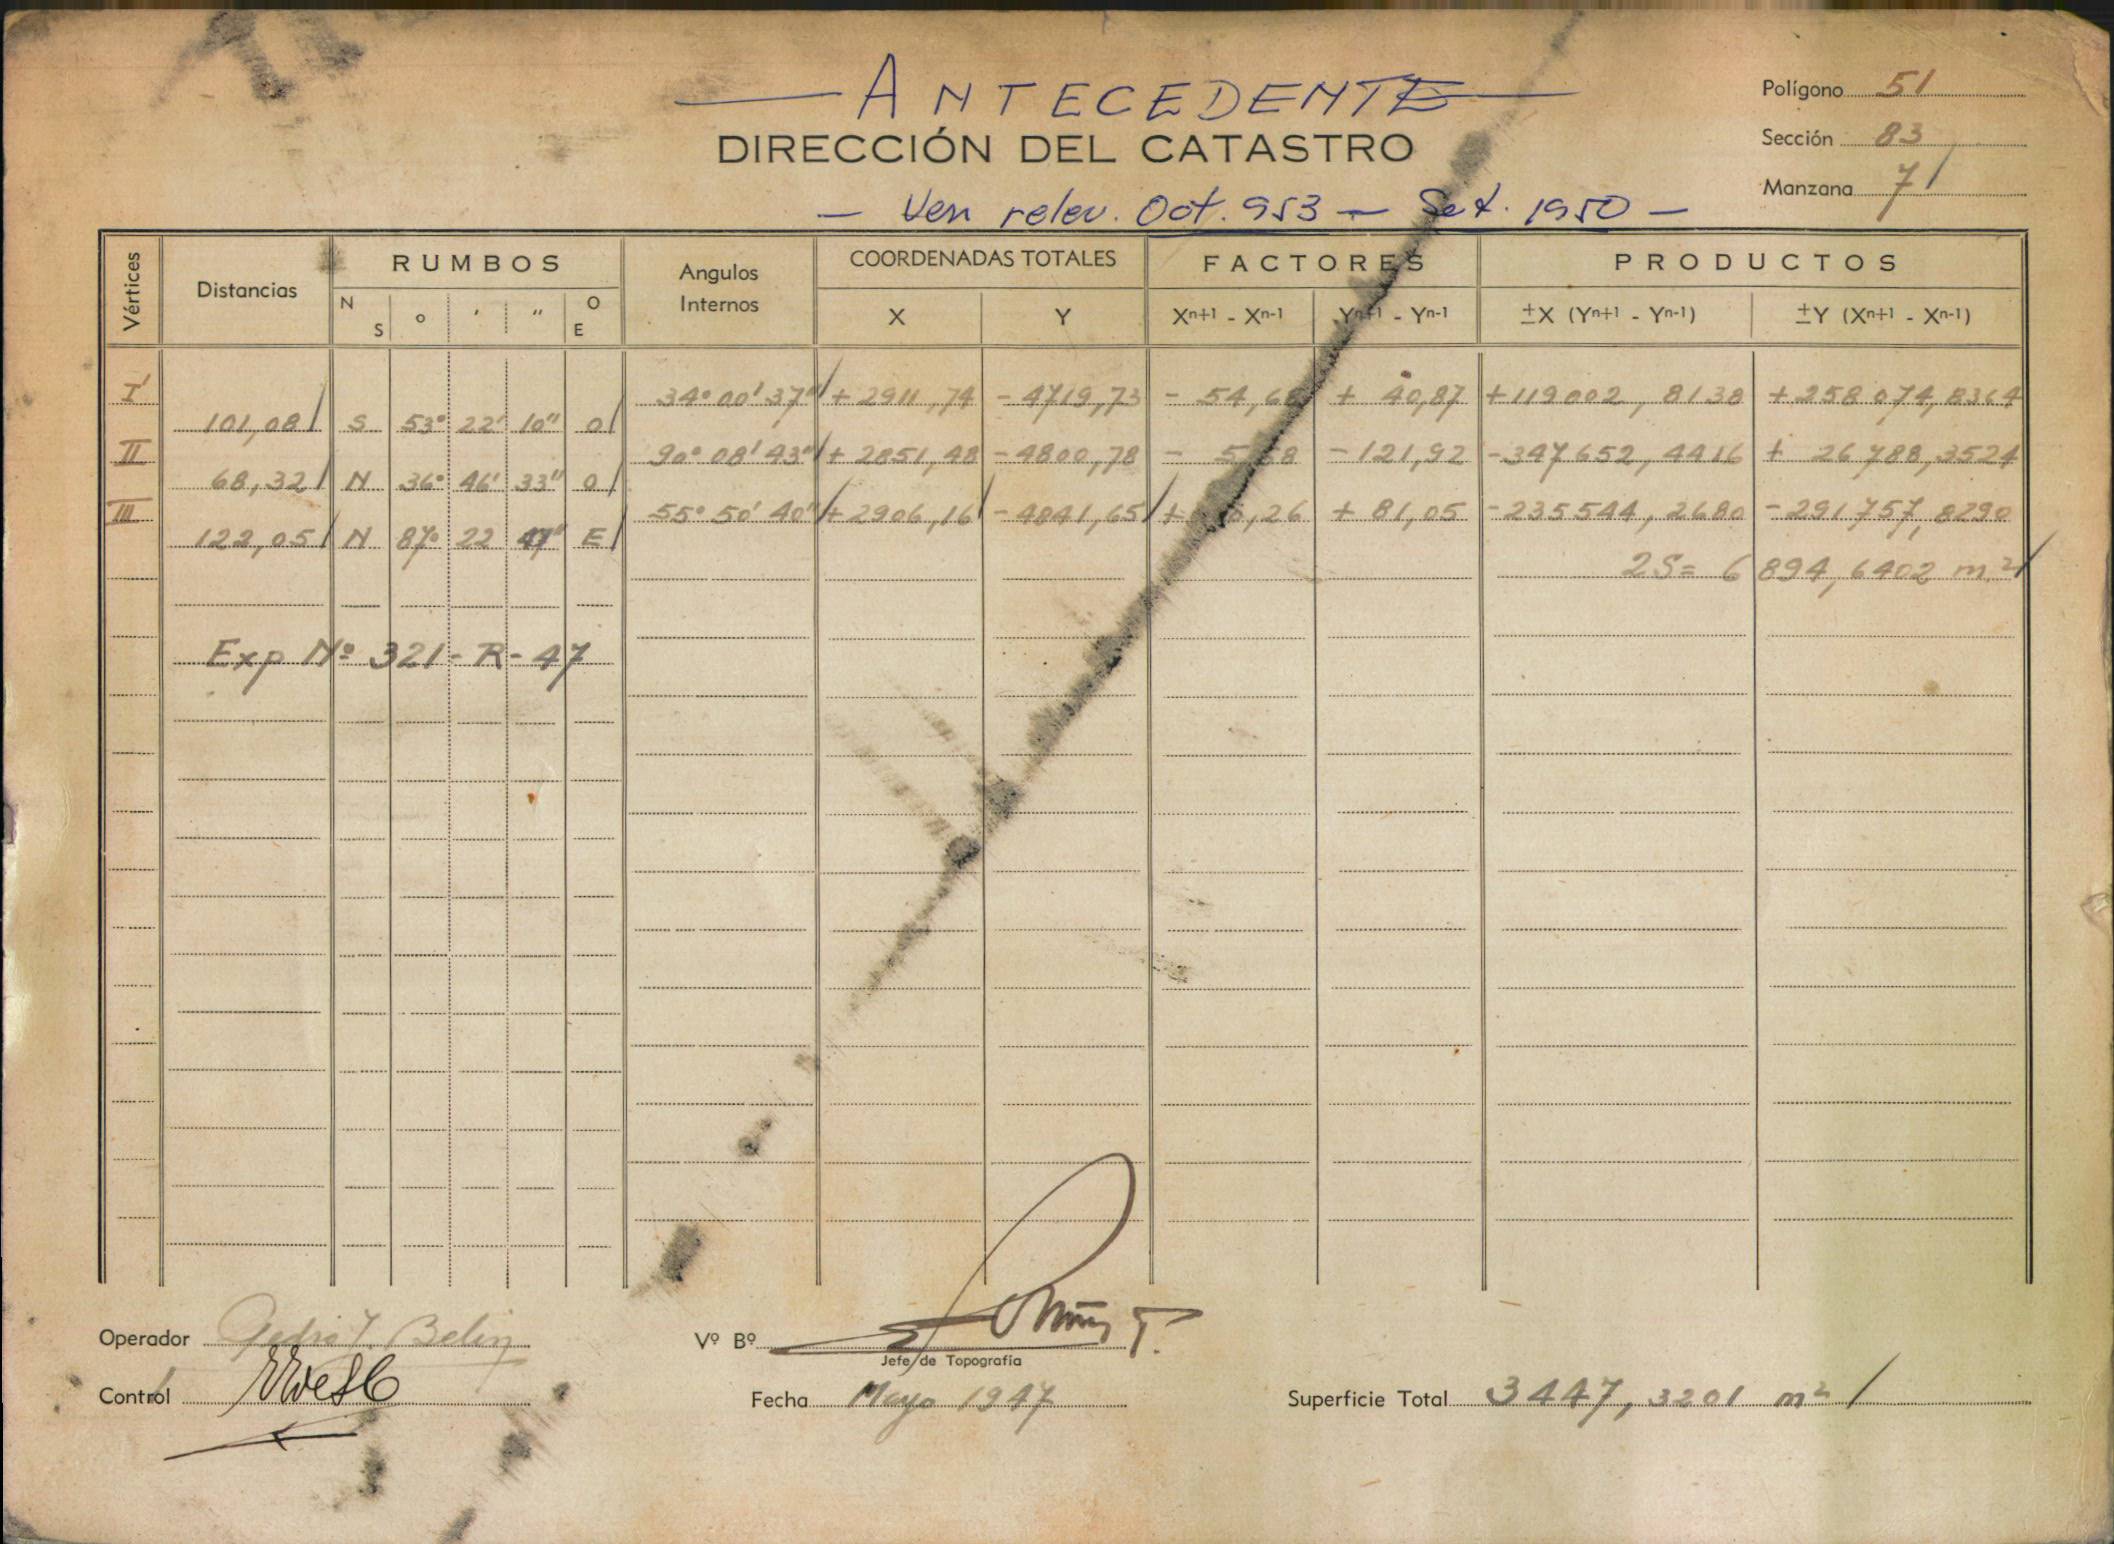 ANTECEDENTE
DIRECCIÓN DEL CATASTRO
— Ver relev. Oct. 953 — Set. 1950 —
Polígono 51
Sección 83
Manzana 71
Vértices Distancias RUMBOS Angulos Internos COORDENADAS TOTALES FACTORES PRODUCTOS
N S ° ' " O E X Y Xn+1 - Xn-1 Yn+1 - Yn-1 ±X (Yn+1 - Yn-1) ±Y (Xn+1 - Xn-1)
I' 34° 00' 37" + 2911,74 - 4719,73 - 54,68 + 40,87 + 119002,8138 + 258074,8364
101,08 S 53° 22' 10" O
II 90° 08' 43" + 2851,48 - 4800,78 - 5,58 - 121,92 - 347652,4416 + 26788,3524
68,32 N 36° 46' 33" O
III 55° 50' 40" + 2906,16 - 4841,65 + 60,26 + 81,05 - 235544,2680 - 291757,8290
122,05 N 87° 22 47" E
2S = 6894,6402 m.²
Exp Nº 321-R-47
Operador Pedro J.
Control
Vº Bº
Jefe de Topografía
Fecha Mayo 1947
Superficie Total 3447,3201 m²